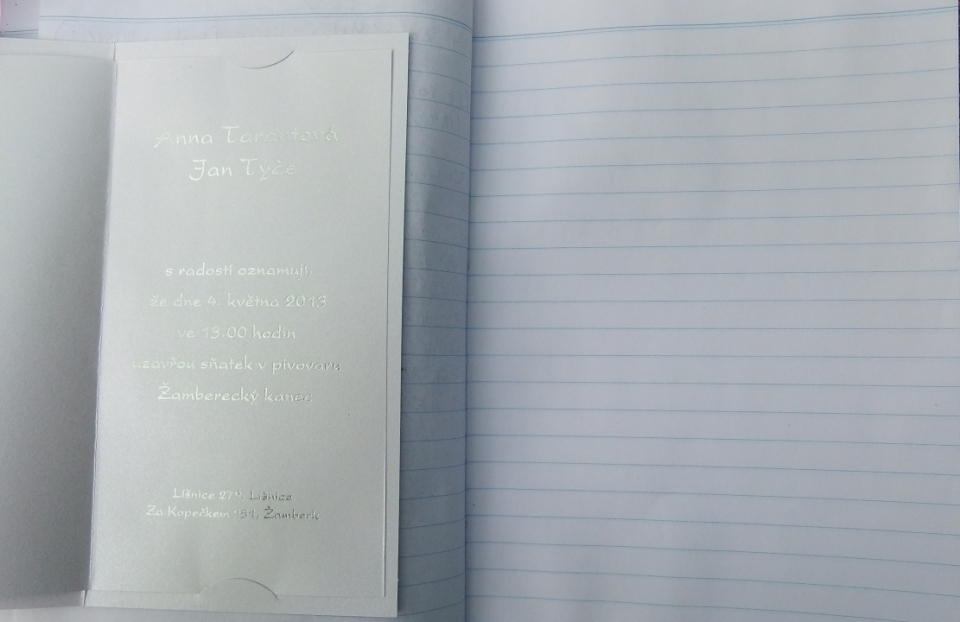 Anna
Jan Týče
s radostí oznamují,
že dne 4. května 2013
ve 13.00 hodin
uzavřou sňatek v pivovaru
Žamberecký kanec
Lišnice 279, Lišnice
Za Kopečkem 151, Žamberk